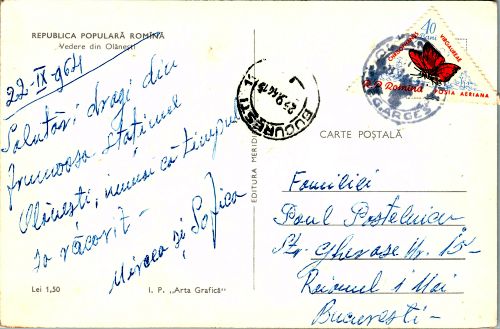 REPUBLICA POPULARĂ ROMÎNĂ
Vedere din Olănești
22-IX-964
Salutări dragi din
frumoasa stațiunea
Olănești, numai că timpul
s-a răcorit -
Mircea și Sofica
Lei 1,50
I. P. „Arta Grafică"
EDITURA MERIDIANE
BUCUREȘTI
10
Bani
R. P. Romînă
POȘTA AERIANĂ
CARTE POȘTALĂ
Familiei
Paul Postelnicu
Str. Gherase Nr.
Raionul 1 Mai
București -